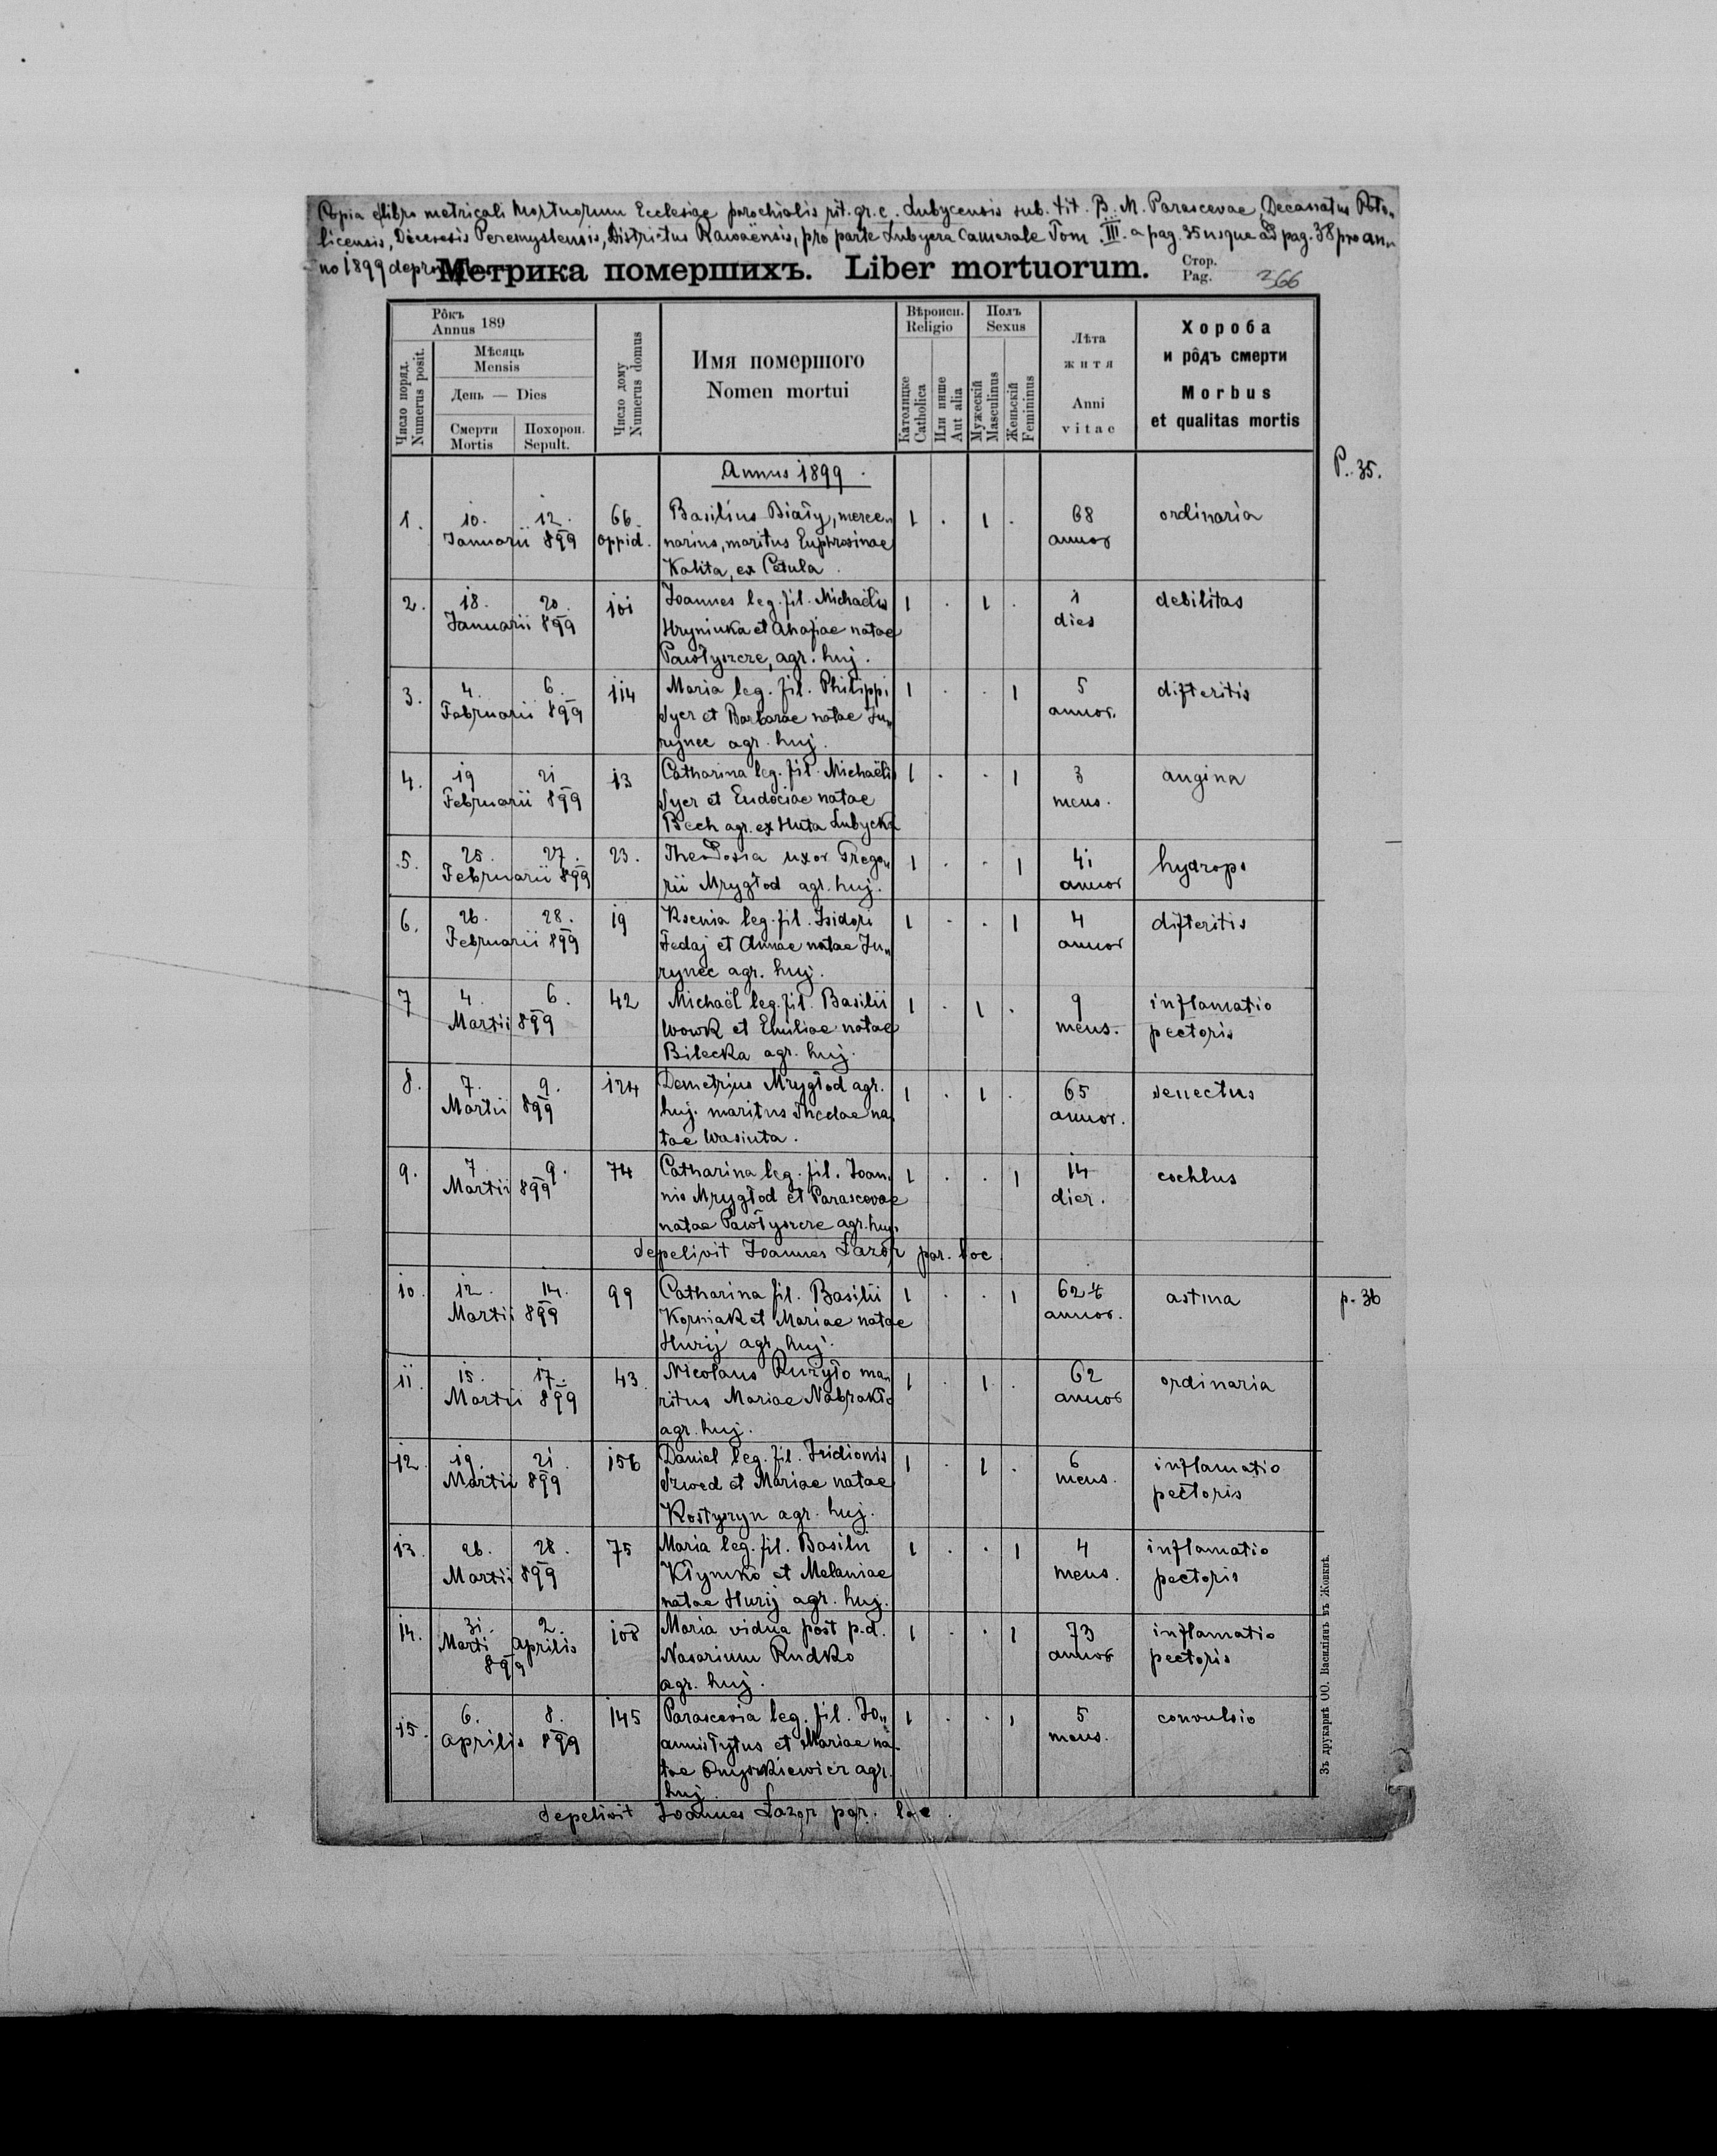 Copia e libro metricali Mortuorum Ecclesiae parochialis rit. gr. c. Lubycensis sub. tit. B. M. Parascevae, Decanatus Poty„
licensis, Dioecesis Peremysliensis, Districtus Rawaënsis, pro parte Lubycza Camerale Tom. III. a pag. 35 usque ad pag. 38 pro an„
no 1899
Метрика помершихъ. Liber mortuorum. Стор. Pag. 366
Рôкъ Annus 189
Число поряд. Numerus posit.
Мѣсяць Mensis
День — Dies
Смерти Mortis
Похорон. Sepult.
Число дому Numerus domus
Имя помершого Nomen mortui
Вѣроисп. Religio
Католицке Catholica
Или инше Aut alia
Полъ Sexus
Мужескій Masculinus
Женьскій Femininus
Лѣта житя Anni vitae
Хороба и рôдъ смерти Morbus et qualitas mortis
Annus 1899.
P. 35.
1. 10. 12. 66. Basilius Biały, merce„ 1 . 1 . 68 ordinaria
Januarii 899 oppid. narius, maritus Euphrosinae annor
Kalita, ex Cetula.
2. 18. 20. 101 Joannes leg. fil. Michaëlis 1 . 1 . 1 debilitas
Januarii 899 Hryniuka et Anafiae natae dies
Pawłyszcze, agr. huj.
3. 4. 6. 114 Maria leg. fil. Philippi 1 . . 1 5 difteritis
Februarii 899 Syer et Barbarae natae Ju„ annor.
rynec agr. huj.
4. 19 21 13 Catharina leg. fil. Michaëlis 1 . . 1 3 angina
Februarii 899 Syer et Eudociae natae mens.
Bech agr. ex Huta Lubycka
5. 25. 27. 23. Theodosia uxor Grego„ 1 . . 1 41 hydrops
Februarii 899 rii Mrygłod agr. huj. annor
6. 26. 28. 19 Ksenia leg. fil. Isidori 1 . . 1 4 difteritis
Februarii 899 Fedaj et Annae natae Ju„ annor
rynec agr. huj.
7 4. 6. 42 Michaël leg. fil. Basilii 1 . 1 . 9 inflamatio
Martii 899 Wowk et Emiliae natae mens. pectoris
Bilecka agr. huj.
8. 7. 9. 124 Demetrius Mrygłod agr. 1 . 1 . 65 senectus
Martii 899 huj. maritus Theclae na annor.
tae Wasiuta.
9. 7 9. 74 Catharina leg. fil. Joan„ 1 . . 1 14 cochlus
Martii 899 nis Mrygłod et Parascevae dier.
natae Pawłyszcze agr. huj.
Sepelivit Joannes Łazor par. loc
10. 12. 14. 99 Catharina fil. Basilii 1 . . 1 62 astma p. 36
Martii 899 Korniak et Mariae natae annor.
Hurij agr. huj.
11. 15. 17. 43. Nicolaus Ruryło ma„ 1 . 1 . 62 ordinaria
Martii 899 ritus Mariae annor
agr. huj.
12. 19. 21. 156 Daniel leg. fil. Iridionis 1 . 1 . 6 inflamatio
Martii 899 Szwed et Mariae natae mens. pectoris
Kostyszyn agr. huj.
13. 26. 28. 75 Maria leg. fil. Basilii 1 . . 1 4 inflamatio
Martii 899 Kłymko et Melaniae mens. pectoris
natae Hurij agr. huj.
14. 31. 2. 108 Maria vidua post p.d. 1 . . 1 73 inflamatio
Marti Aprilis Nasarium Rudko annor pectoris
899 agr. huj.
15. 6. 8. 145 Parascevia leg. fil. Jo„ 1 . . 1 5 convulsio
Aprilis 899 annis Tytus et Mariae na mens.
tae Onyszkiewicz agr.
huj.
Sepelivit Joannes Łazor par. loc.
Зъ друкарнѣ ОО. Василіянъ въ Жовквѣ.